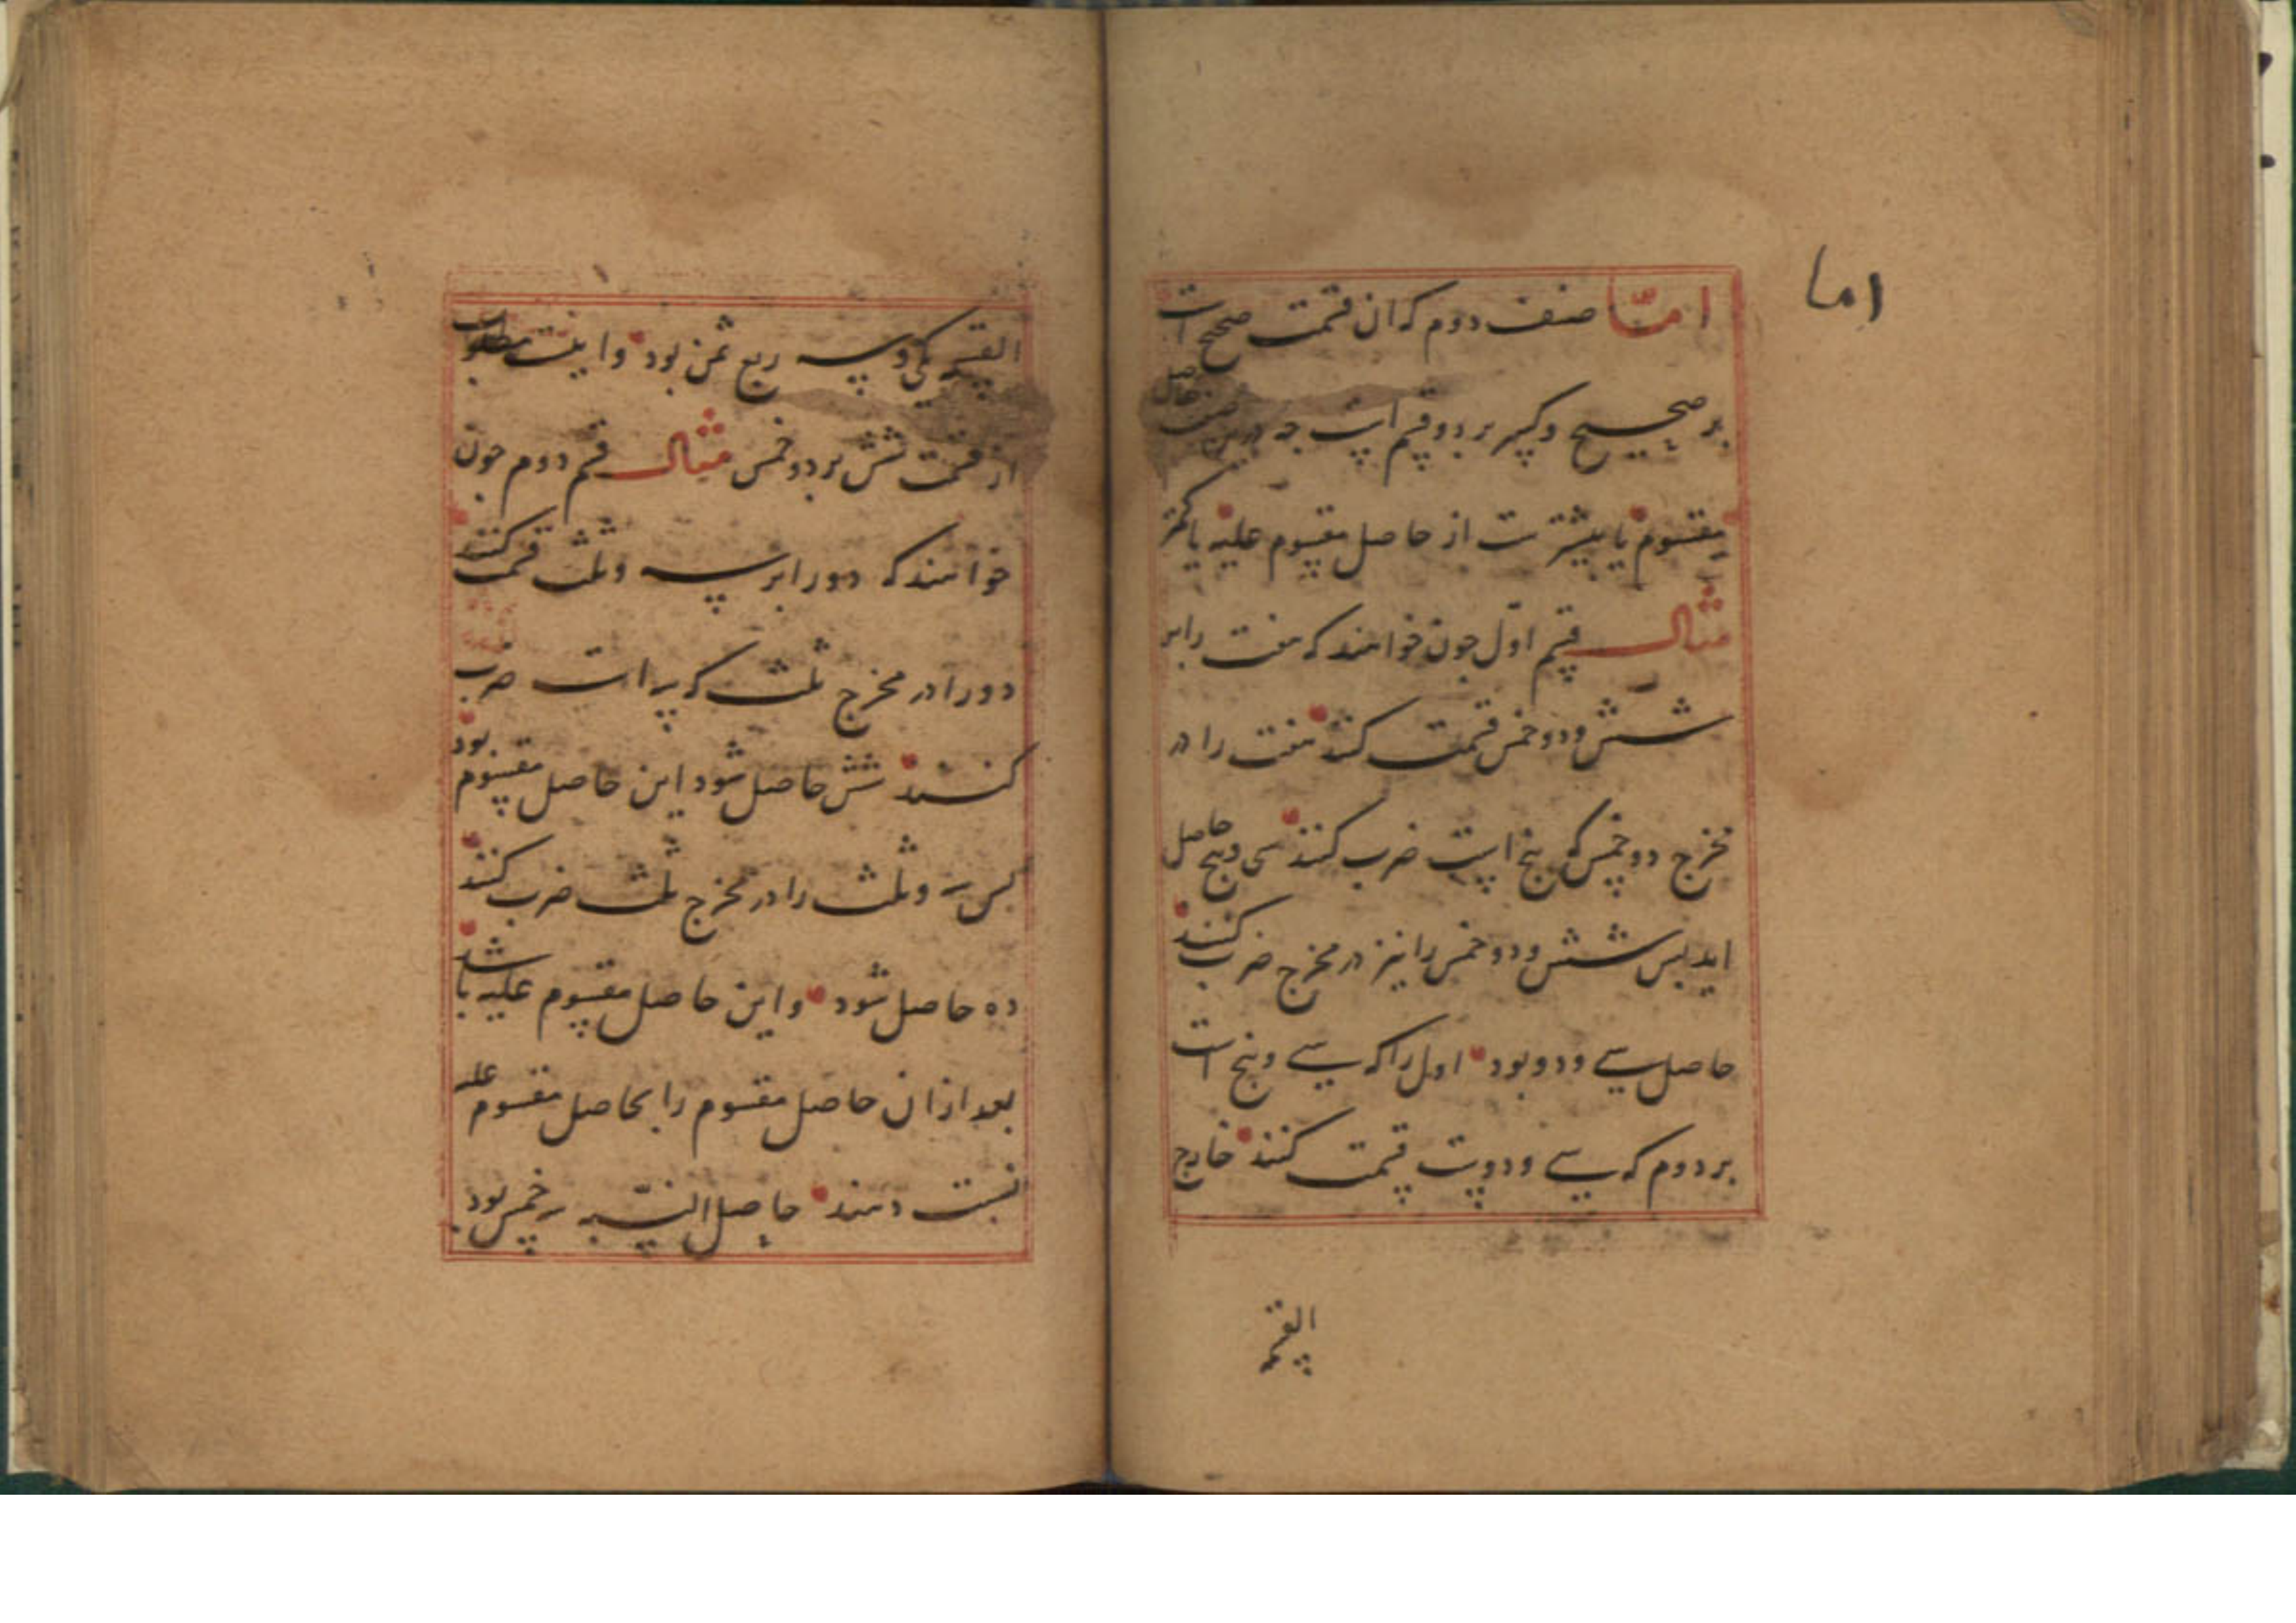 اما
امّا صنف دوم که ان قسمت صحیح است
بر صحیح و کسر بر دو قسم است چه درین صنف حاصل
مقسوم یا بیشترست از حاصل مقسوم علیه یا کمتر
مثال قسم اوّل چون خواهند که هفت را بر
شش و دو خمس قسمت کنند هفت را در
مخرج دو خمس که پنج است ضرب کنند سی و پنج حاصل
اید پس شش و دو خمس را نیز در مخرج ضرب کنند
حاصل سی و دو بود اول را که سی و پنج است
بر دوم که سی و دوست قسمت کنند خارج
القسمة
القسمة یکی و سه ربع ثمن بود و اینست مطلوب
از قسمت شش بر دو خمس مثال قسم دوم چون
خواهند که دو را بر سه و ثلث قسمت کنند
دو را در مخرج ثلث که سه است ضرب
کنند شش حاصل شود این حاصل مقسوم بود
پس سه و ثلث را در مخرج ثلث ضرب کنند
ده حاصل شود و این حاصل مقسوم علیه باشد
بعد ازان حاصل مقسوم را بحاصل مقسوم علیه
نسبت دهند حاصل النسبه سه خمس بود